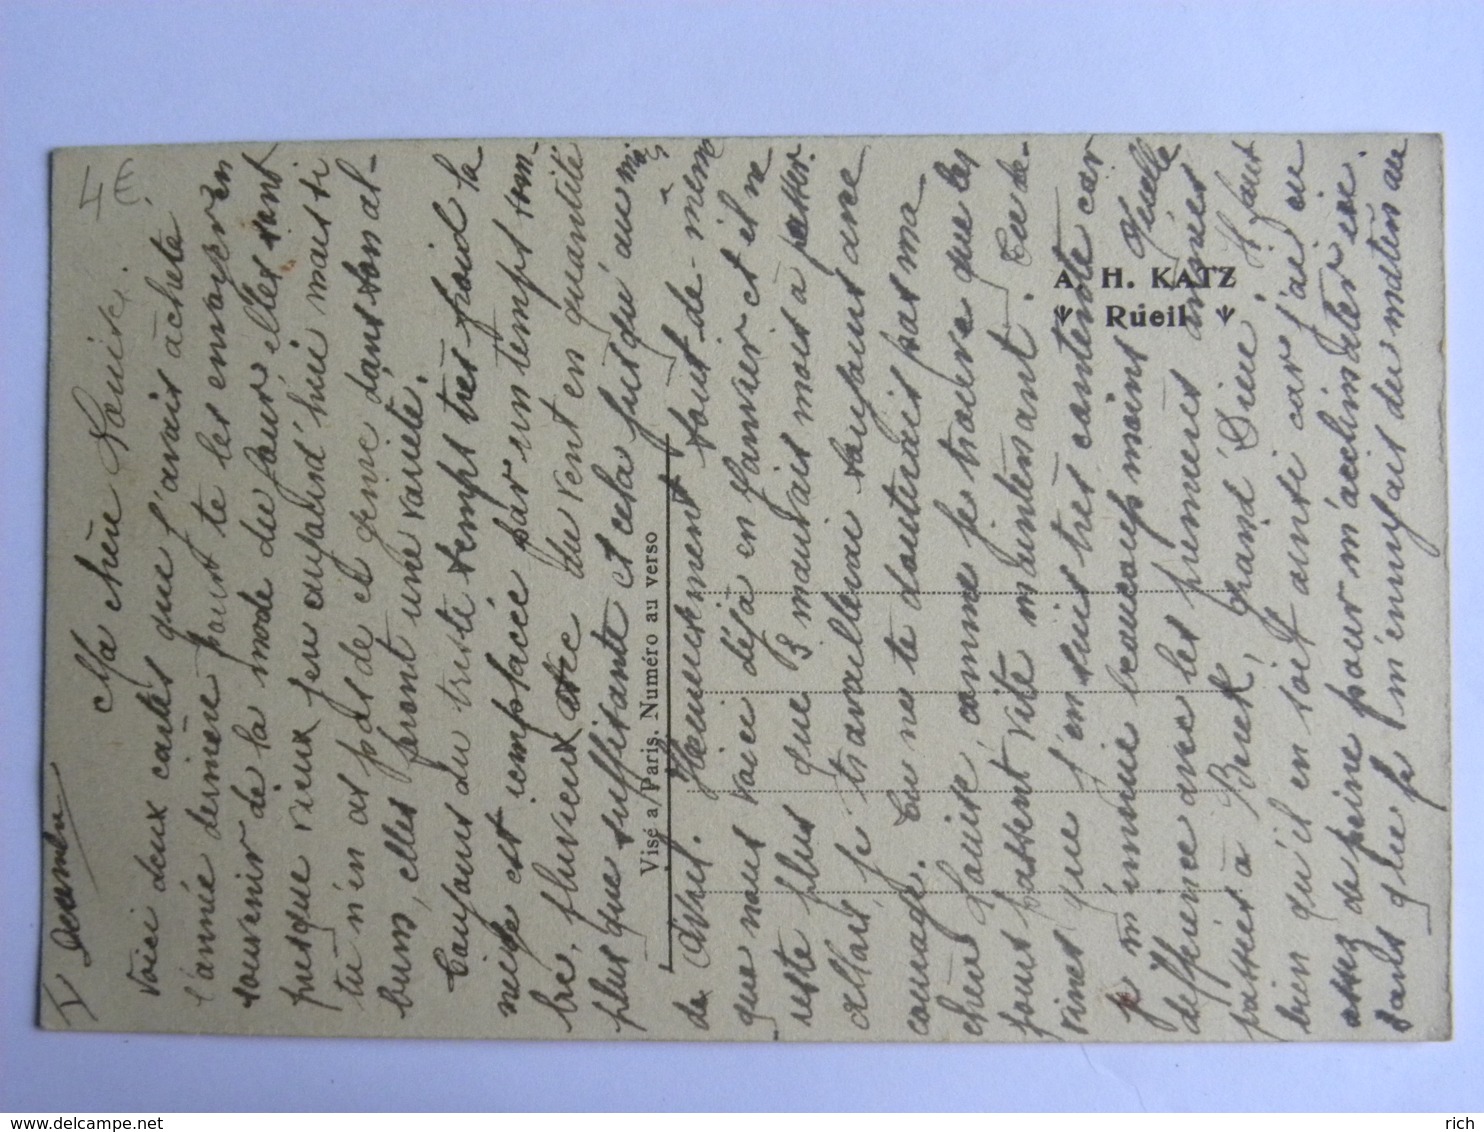 4€.
V decembre
Ma chère Louise.
Voici deux cartes que j'avais acheté
l'année dernière pour te les envoyer en
souvenir de la mode du jour elles sont
presque vieux jeu aujourd'hui mais si
tu n'en as pas de ce genre dans ton al-
bum, elles feront une variété.
Toujours du triste temps très froid la
neige est remplacée par un temps som-
bre, pluvieux et du vent en quantité
plus que suffisante et cela jusqu'au mois
d'Avril. Heureusement tout de même
que nous voici déjà en Janvier et il ne
reste plus que 3 mauvais mois à passer.
Allons, je travaillerai toujours avec
courage. Tu ne te douterais pas ma
chère Louise, comme je trouve que les
jours passent vite maintenant. Tu de-
vines que j'en suis très contente car
je m'ennuie beaucoup moins. Quelle
différence avec les premières années
passées à Brest, grand Dieu! Il faut
bien qu'il en soit ainsi car j'ai eu
assez de peine pour m'acclimater ici.
sans que je m'ennuyais du matin au
Visé a/Paris. Numéro au verso
A. H. KATZ
Rueil
delcampe.net
rich